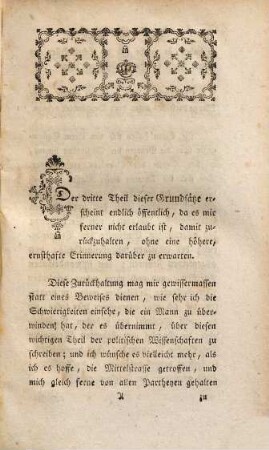 Der dritte Theil dieser Grundsätze er-
scheint endlich öffentlich, da es mir
ferner nicht erlaubt ist, damit zu-
rückzuhalten, ohne eine höhere,
ernsthafte Erinnerung darüber zu erwarten.
Diese Zurückhaltung mag mir gewissermassen
statt eines Beweises dienen, wie sehr ich die
Schwierigkeiten einsehe, die ein Mann zu über-
winden hat, der es übernimmt, über diesen
wichtigen Theil der politischen Wissenschaften zu
schreiben; und ich wünsche es vielleicht mehr, als
ich es hoffe, die Mittelstrasse getroffen, und
mich gleich ferne von allen Partheyen gehalten
A zu